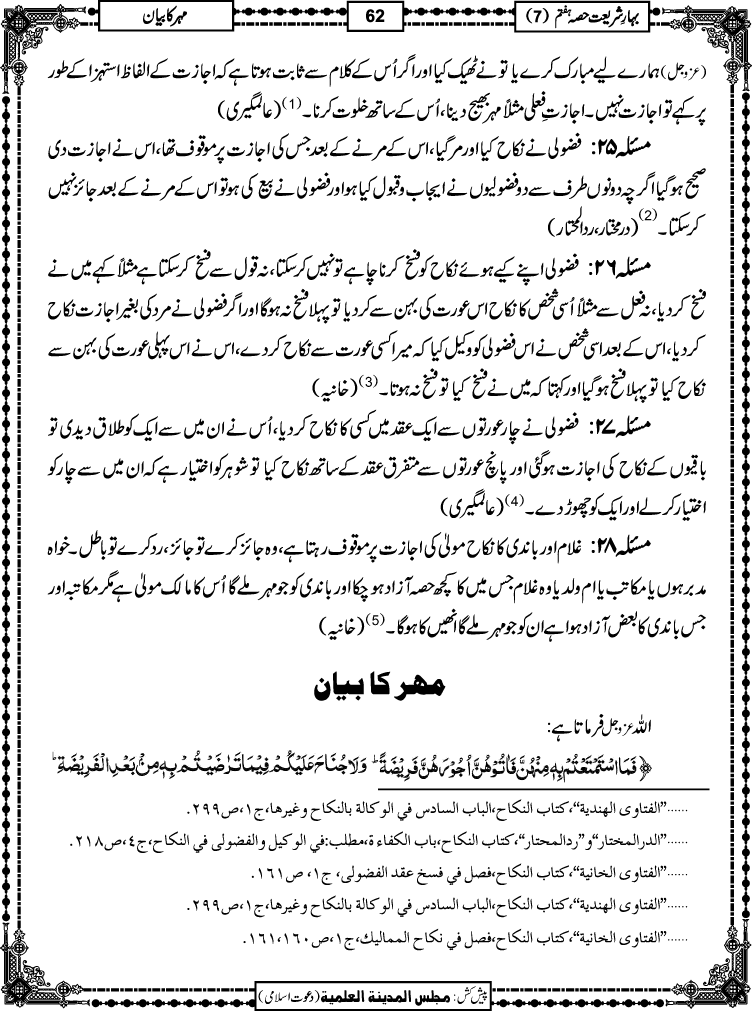 بہارِشریعت حصہ ہفتم (7)
62
مہر کا بیان
(عزوجل) ہمارے لیے مبارک کرے یا تو نے ٹھیک کیا اور اگر اُس کے کلام سے ثابت ہوتا ہے کہ اجازت کے الفاظ استہزا کے طور
پر کہے تو اجازت نہیں۔ اجازتِ فعلی مثلاً مہر بھیج دینا، اُس کے ساتھ خلوت کرنا۔(1) (عالمگیری)
مسئلہ ۲۵: فضولی نے نکاح کیا اور مرگیا، اس کے مرنے کے بعد جس کی اجازت پر موقوف تھا، اس نے اجازت دی
صحیح ہوگیا اگرچہ دونوں طرف سے دو فضولیوں نے ایجاب و قبول کیا ہو اور فضولی نے بیع کی ہو تو اس کے مرنے کے بعد جائز نہیں
کرسکتا۔(2) (درمختار، ردالمحتار)
مسئلہ ۲۶: فضولی اپنے کیے ہوئے نکاح کو فسخ کرنا چاہے تو نہیں کرسکتا، نہ قول سے فسخ کرسکتا ہے مثلاً کہے میں نے
فسخ کردیا، نہ فعل سے مثلاً اُسی شخص کا نکاح اس عورت کی بہن سے کردیا تو پہلا فسخ نہ ہوگا اور اگر فضولی نے مرد کی بغیر اجازت نکاح
کردیا، اس کے بعد اسی شخص نے اس فضولی کو وکیل کیا کہ میرا کسی عورت سے نکاح کردے، اس نے اس پہلی عورت کی بہن سے
نکاح کیا تو پہلا فسخ ہوگیا اور کہتا کہ میں نے فسخ کیا تو فسخ نہ ہوتا۔(3) (خانیہ)
مسئلہ ۲۷: فضولی نے چار عورتوں سے ایک عقد میں کسی کا نکاح کردیا، اُس نے ان میں سے ایک کو طلاق دیدی تو
باقیوں کے نکاح کی اجازت ہوگئی اور پانچ عورتوں سے متفرق عقد کے ساتھ نکاح کیا تو شوہر کو اختیار ہے کہ ان میں سے چار کو
اختیار کرلے اور ایک کو چھوڑ دے۔(4) (عالمگیری)
مسئلہ ۲۸: غلام اور باندی کا نکاح مولیٰ کی اجازت پر موقوف رہتا ہے، وہ جائز کرے تو جائز، رد کرے تو باطل۔ خواہ
مدبر ہوں یا مکاتب یا ام ولد یا وہ غلام جس میں کا کچھ حصہ آزاد ہوچکا اور باندی کو جو مہر ملے گا اُس کا مالک مولیٰ ہے مگر مکاتبہ اور
جس باندی کا بعض آزاد ہوا ہے ان کو جو مہر ملے گا انھیں کا ہوگا۔(5) (خانیہ)
مہر کا بیان
اللہ عزوجل فرماتا ہے:
﴿ فَمَا اسْتَمْتَعْتُمْ بِهٖ مِنْهُنَّ فَاٰتُوْهُنَّ اُجُوْرَهُنَّ فَرِیْضَةً ؕ وَلَا جُنَاحَ عَلَیْكُمْ فِیْمَا تَرٰضَیْتُمْ بِهٖ مِنْۢ بَعْدِ الْفَرِیْضَةِ ؕ
......"الفتاوی الهندية"، كتاب النكاح، الباب السادس في الوكالة بالنكاح وغيرها، ج۱، ص۲۹۹.
......"الدرالمختار" و "ردالمحتار"، كتاب النكاح، باب الكفاءة، مطلب: في الوكيل والفضولى في النكاح، ج٤، ص۲۱۸.
......"الفتاوی الخانية"، كتاب النكاح، فصل في فسخ عقد الفضولى، ج۱، ص۱٦۱.
......"الفتاوی الهندية"، كتاب النكاح، الباب السادس في الوكالة بالنكاح وغيرها، ج۱، ص۲۹۹.
......"الفتاوی الخانية"، كتاب النكاح، فصل في نكاح المماليك، ج۱، ص۱٦۰،۱٦۱.
پیش کش: مجلس المدينة العلمية (دعوت اسلامی)